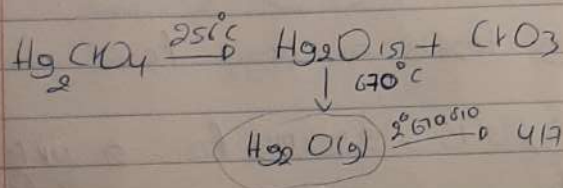 Hg2CrO4 251°C → Hg2O(s) + CrO3
↓ 670°C
Hg2O(g) 2°670810 → 417